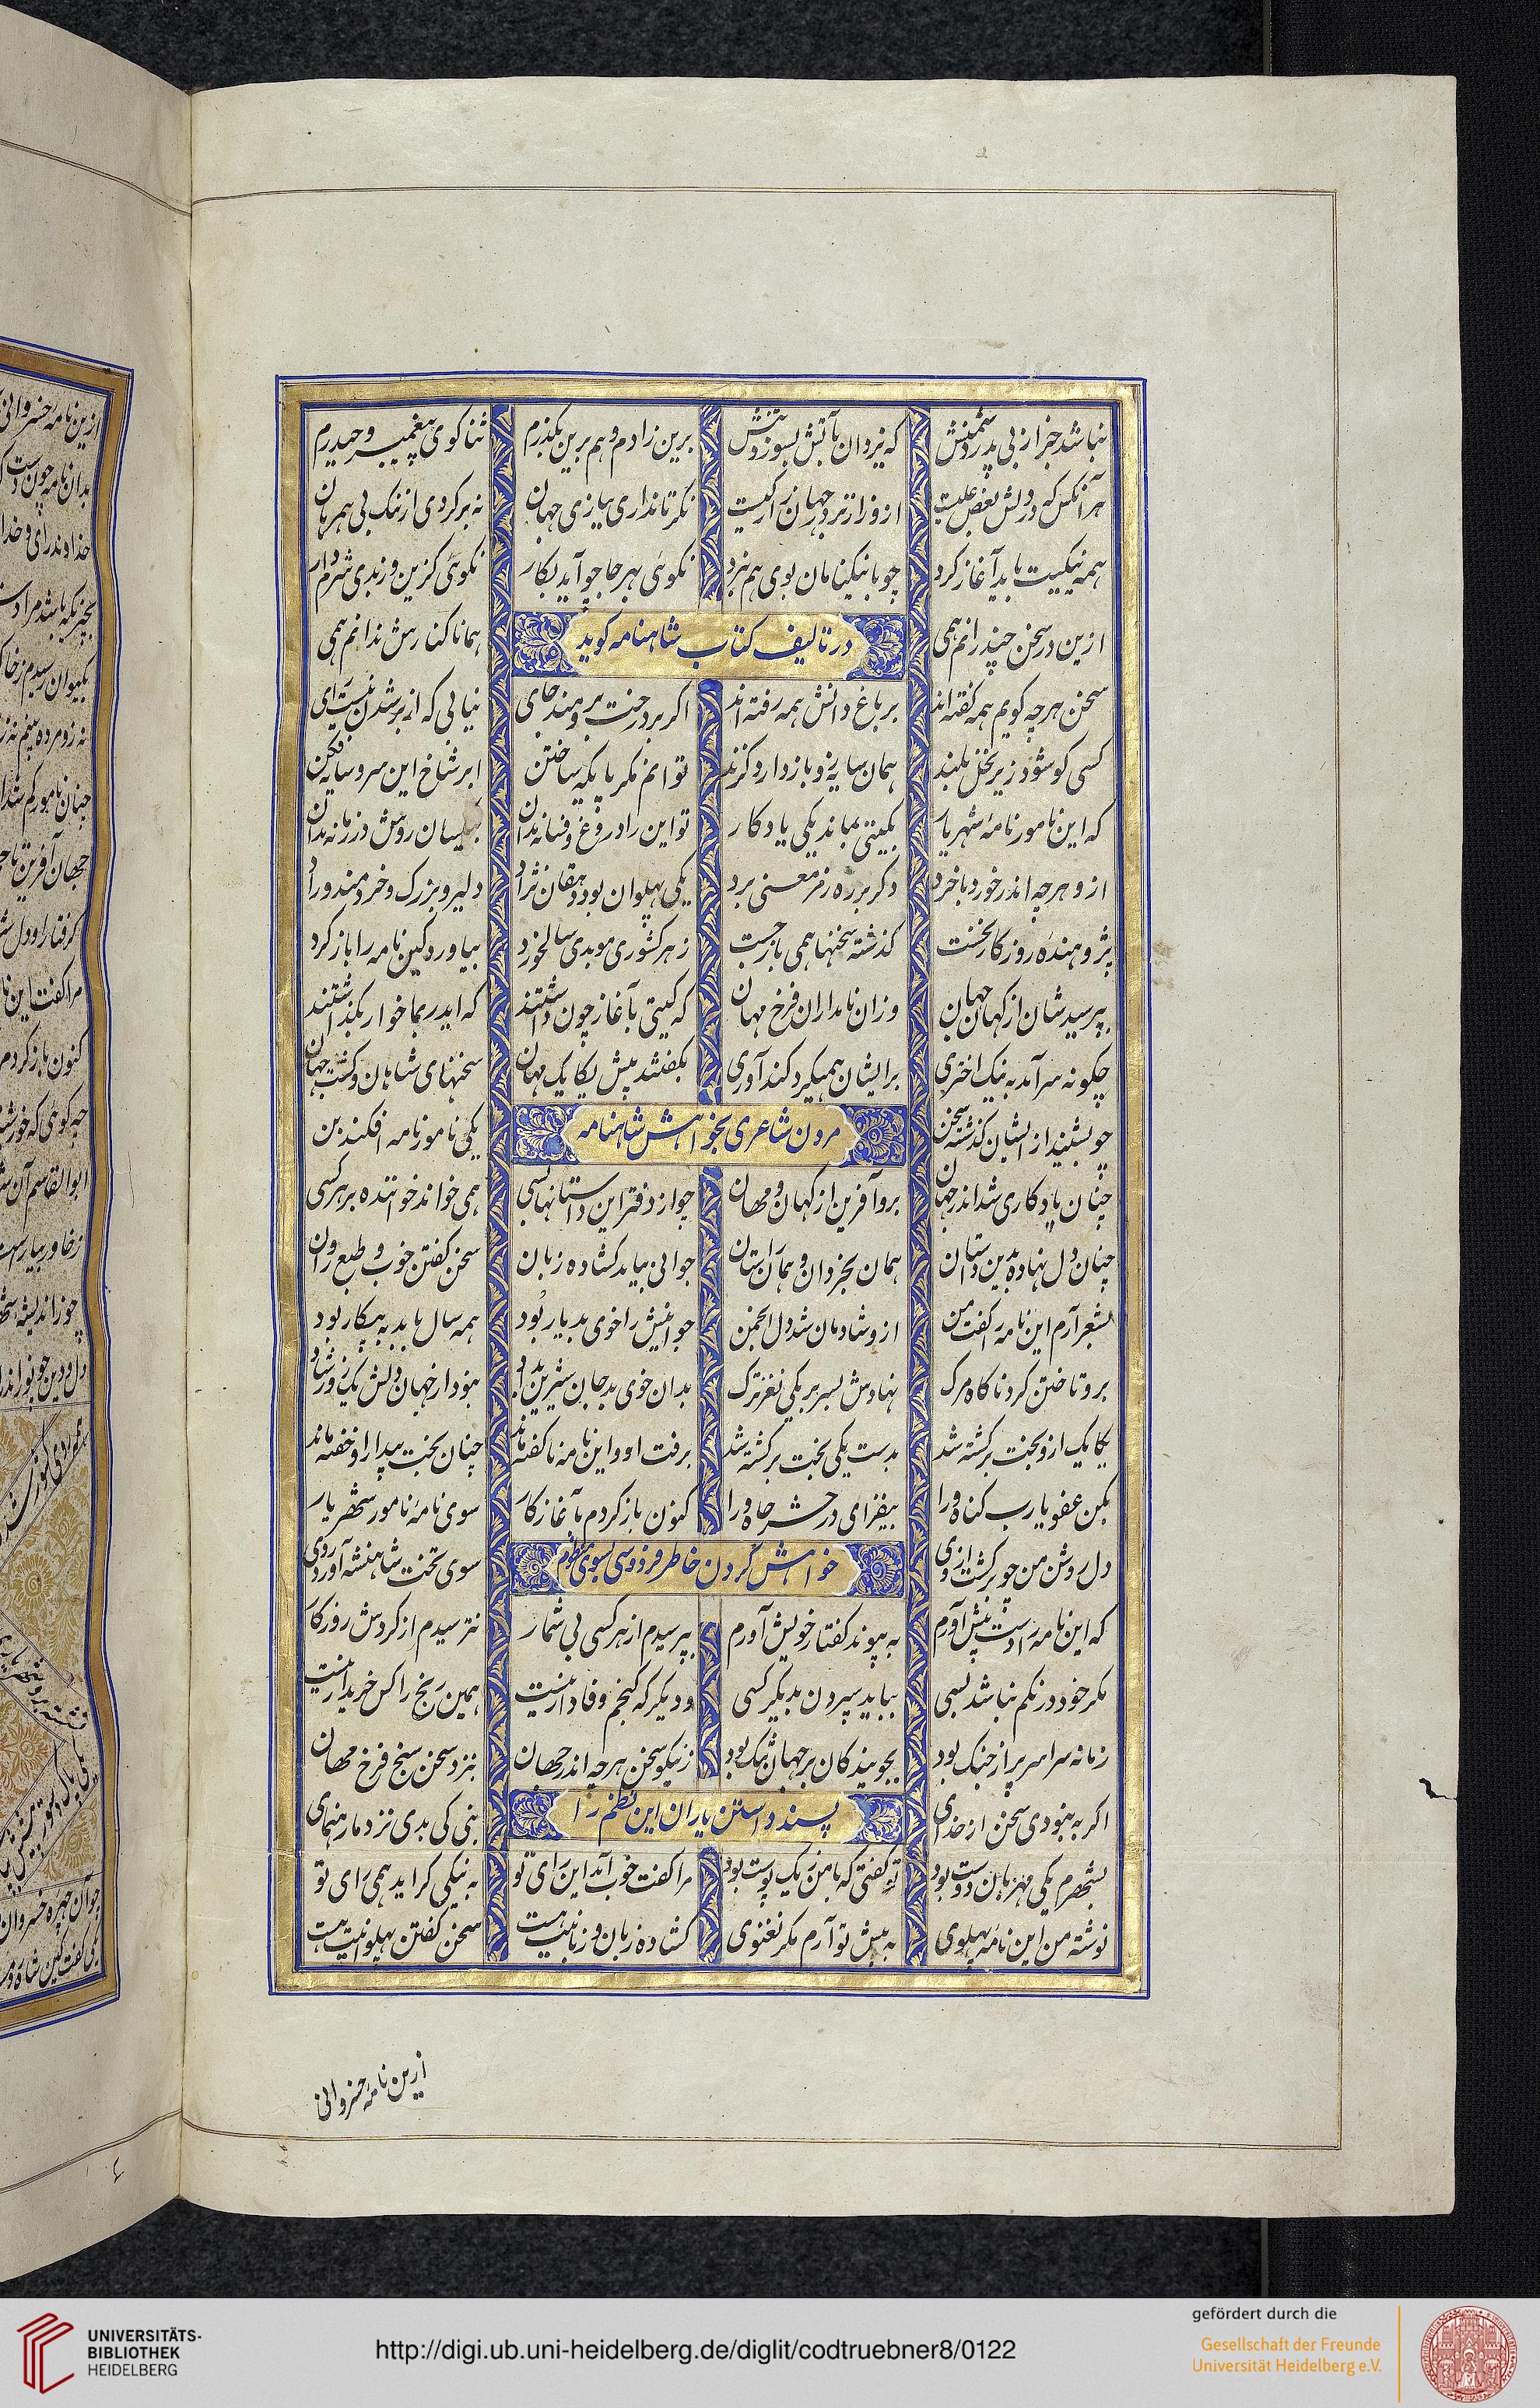 نباشد جز از بی پدر دشمنش که یزدان بآتش بسوزد تنش برین زادم و هم برین بگذرم ثنا گوی پیغمبر و حیدرم
هر آنکس که در دلش بغض علیست ازو زارتر در جهان زار کیست نگر تا نداری ببازی جهان نه برگردی از نیک پی همرهان
همه نیکیت باید آغاز کرد چو با نیکنامان بوی هم نبرد نکوئی بهر جا چو آید بکار نکوئی گزین وز بدی شرم دار
ازین در سخن چند رانم همی همانا کنارش ندانم همی
در تالیف کتاب شاهنامه گوید
سخن هر چه گویم همه گفته‌اند بر باغ دانش همه رفته‌اند اگر بر درخت برومند جای نیابی که از بر شدن نیست رای
کسی کو شود زیر نخل بلند همان سایه زو باز دارد گزند توانم مگر پایگه ساختن ابر شاخ این سرو سایه فکن
که این نامور نامهٔ شهریار بگیتی بماند یکی یادگار تو این را دروغ و فسانه مدان بیکسان روش در زمانه مدان
ازو هر چه اندر خورد با خرد دگر بر ره رمز معنی برد یکی پهلوان بود دهقان نژاد دلیر و بزرگ و خردمند و راد
پژوهندهٔ روزگار نخست گذشته سخنها همی باز جست ز هر کشوری موبدی سالخورد بیاورد کین نامه را باز کرد
بپرسیدشان از کهان جهان وزان نامداران فرخ مهان که گیتی بآغاز چون داشتند که ایدر بما خوار بگذاشتند
چگونه سر آمد به نیک اختری برایشان همیگرد کندآوری بگفتند پیش یکایک مهان سخنهای شاهان و گشت جهان
چو بشنید از ایشان گذشته سخن یکی نامور نامه افکند بن
مردن شاعری بخواهش شاهنامه
چنان یادگاری شد اندر جهان برو آفرین از کهان و مهان چو از دفتر این داستانها بسی همی خواند خواننده بر هر کسی
جهان دل نهاده بدین داستان همان بخردان و همان راستان جوانی بیامد گشاده زبان سخن گفتن خوب و طبع روان
بشعر آرم این نامه را گفت من ازو شادمان شد دل انجمن جوانیش را خوی بد یار بود همه سال با بد به پیکار بود
برو تاختن کرد ناگاه مرگ نهادش بسر بر یکی نغز ترگ بدان خوی بد جان شیرین بداد نبود از جهان دلش یک روز شاد
یکایک ازو بخت برگشته شد بدست یکی بخت برگشته شد برفت او و این نامه ناگفته ماند چنان بخت بیدار او خفته ماند
بکن عفو یا رب گناه ورا بیفزای در حشر جاه ورا کنون باز کردم بآغاز کار سوی نامهٔ نامور شهریار
دل روشن من چو برگشت از وی سوی تخت شاهنشه آورد روی
خواهش کردن خاطر فردوسی بسوی نظم
که این نامه را دست پیش آورم به پیوند گفتار خویش آورم بپرسیدم از هر کسی بی شمار بترسیدم از گردش روزگار
مگر خود درنگم نباشد بسی بباید سپردن بدیگر کسی و دیگر که گنجم وفادار نیست همین رنج را کس خریدار نیست
زمانه سراسر پر از جنگ بود بجویندگان بر جهان تنگ بود ز نیکو سخن هر چه اندر جهان بنزد سخن سنج فرخ مهان
اگر به نبودی سخن از خدای نبی کی بدی نزد ما رهنمای
پسند داستن یاران این نظم را
بشهرم یکی مهربان دوست بود تو گفتی که با من یک پوست بود مرا گفت خوب آمد این رای تو به نیکی گراید همی رای تو
نوشته من این نامهٔ پهلوی به پیش تو آرم مگر نغنوی گشاده زبان و زبانیت هست سخن گفتن پهلوانیت هست
ازین نامهٔ خسروانی
UNIVERSITÄTS-
BIBLIOTHEK
HEIDELBERG
http://digi.ub.uni-heidelberg.de/diglit/codtruebner8/0122
gefördert durch die
Gesellschaft der Freunde
Universität Heidelberg e.V.